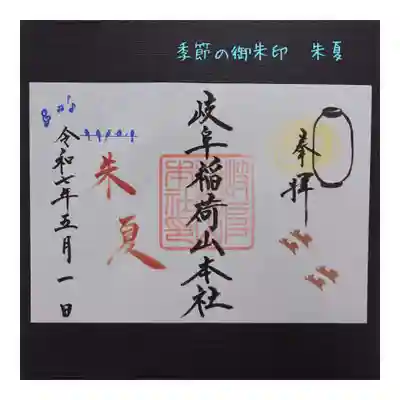 季節の御朱印　朱夏
奉拝
岐阜稲荷山本社
朱夏
令和七年五月一日